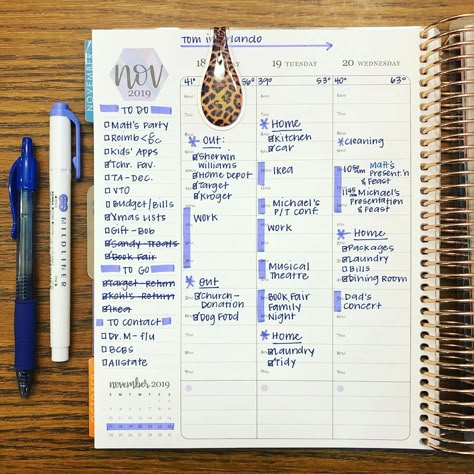 Tom in Orlando
NOVEMBER
nov
2019
TO DO
Matt's Party
Reimb
Kids' Apps
Tchr. Fav.
TA-Dec.
VTO
Budget/Bills
Xmas Lists
Gift-Bob
Sandy-Treats
Book Fair
TO GO
Target-Return
Kohl's-Return
Ikea
TO CONTACT
Dr. M-f/u
BCBS
Allstate
november 2019
18
41°
56°
Out:
Sherwin
Williams
Home Depot
Target
Kroger
Work
Out
Church-
Donation
Dog Food
19 TUESDAY
39°
53°
Home
Kitchen
Car
Ikea
Michael's
P/T Conf.
Work
Musical
Theatre
Book Fair
Family
Night
Home
Laundry
Tidy
20 WEDNESDAY
40°
63°
Cleaning
Matt's
Present'n
& Feast
1145 Michael's
Presentation
& Feast
Home
Packages
Laundry
Bills
Dining Room
Dad's
Concert
MILDLINER